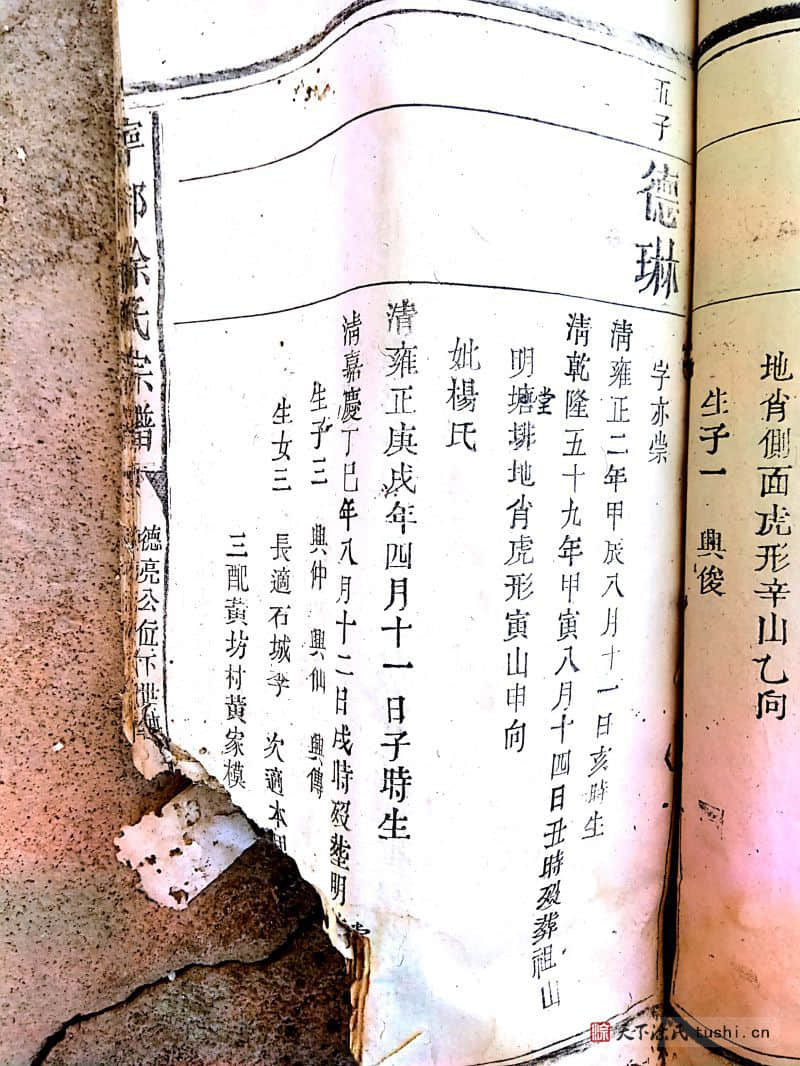 地肖側面虎形辛山乙向
生子一 興俊
五子 德琳
字亦崇
清雍正二年甲辰八月十一日亥時生
清乾隆五十九年甲寅八月十四日丑時歿葬祖山
明堂塘排地肖虎形寅山申向
妣楊氏
清雍正庚戌年四月十一日子時生
清嘉慶丁巳年八月十二日戌時歿塟明堂
生子三 興仲 興仙 興傳
生女三 長適石城李 次適本
三配黃坊村黃家模
寧都涂氏宗譜 德亮公位下世
天下涂氏 tushi.cn